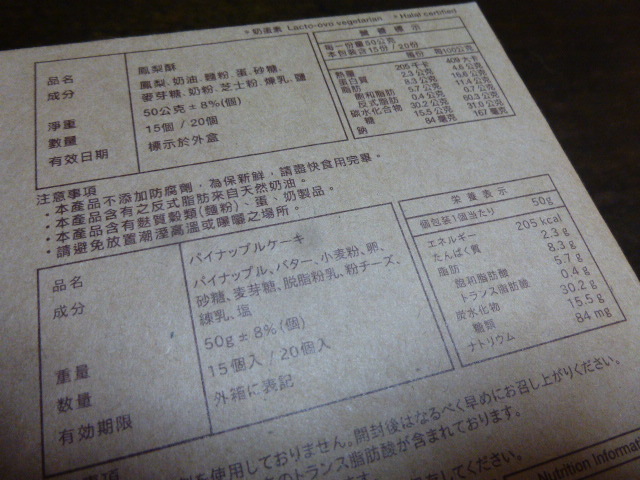 *奶蛋素 Lacto-ovo vegetarian *Halal certified
品名 鳳梨酥
成分 鳳梨、奶油、麵粉、蛋、砂糖、
麥芽糖、奶粉、芝士粉、煉乳、鹽
淨重 50公克±8%(個)
數量 15個 / 20個
有效日期 標示於外盒
營養標示
每一份量50公克
本包裝含15份/20份
每份 每100公克
熱量 205大卡 409大卡
蛋白質 2.3公克 4.6公克
脂肪 8.3公克 16.6公克
飽和脂肪 5.7公克 11.4公克
反式脂肪 0.4公克 0.7公克
碳水化合物 30.2公克 60.3公克
糖 15.5公克 31.0公克
鈉 84毫克 167毫克
注意事項
・本產品不添加防腐劑，為保新鮮，請盡快食用完畢。
・本產品含有之反式脂肪來自天然奶油。
・本產品含有麩質穀類(麵粉)、蛋、奶製品。
・請避免放置潮溼高溫或曝曬之場所。
品名 パイナップルケーキ
成分 パイナップル、バター、小麦粉、卵、
砂糖、麦芽糖、脱脂粉乳、粉チーズ、
練乳、塩
重量 50g±8%(個)
数量 15個入 / 20個入
有効期限 外箱に表記
栄養表示
個包装1個当たり 50g
エネルギー 205 kcal
たんぱく質 2.3g
脂肪 8.3g
飽和脂肪酸 5.7g
トランス脂肪酸 0.4g
炭水化物 30.2g
糖類 15.5g
ナトリウム 84 mg
事項
を使用しておりません。開封後はなるべく早めにお召し上がりください。
のトランス脂肪酸が含まれております。
してください。
Nutrition Informati